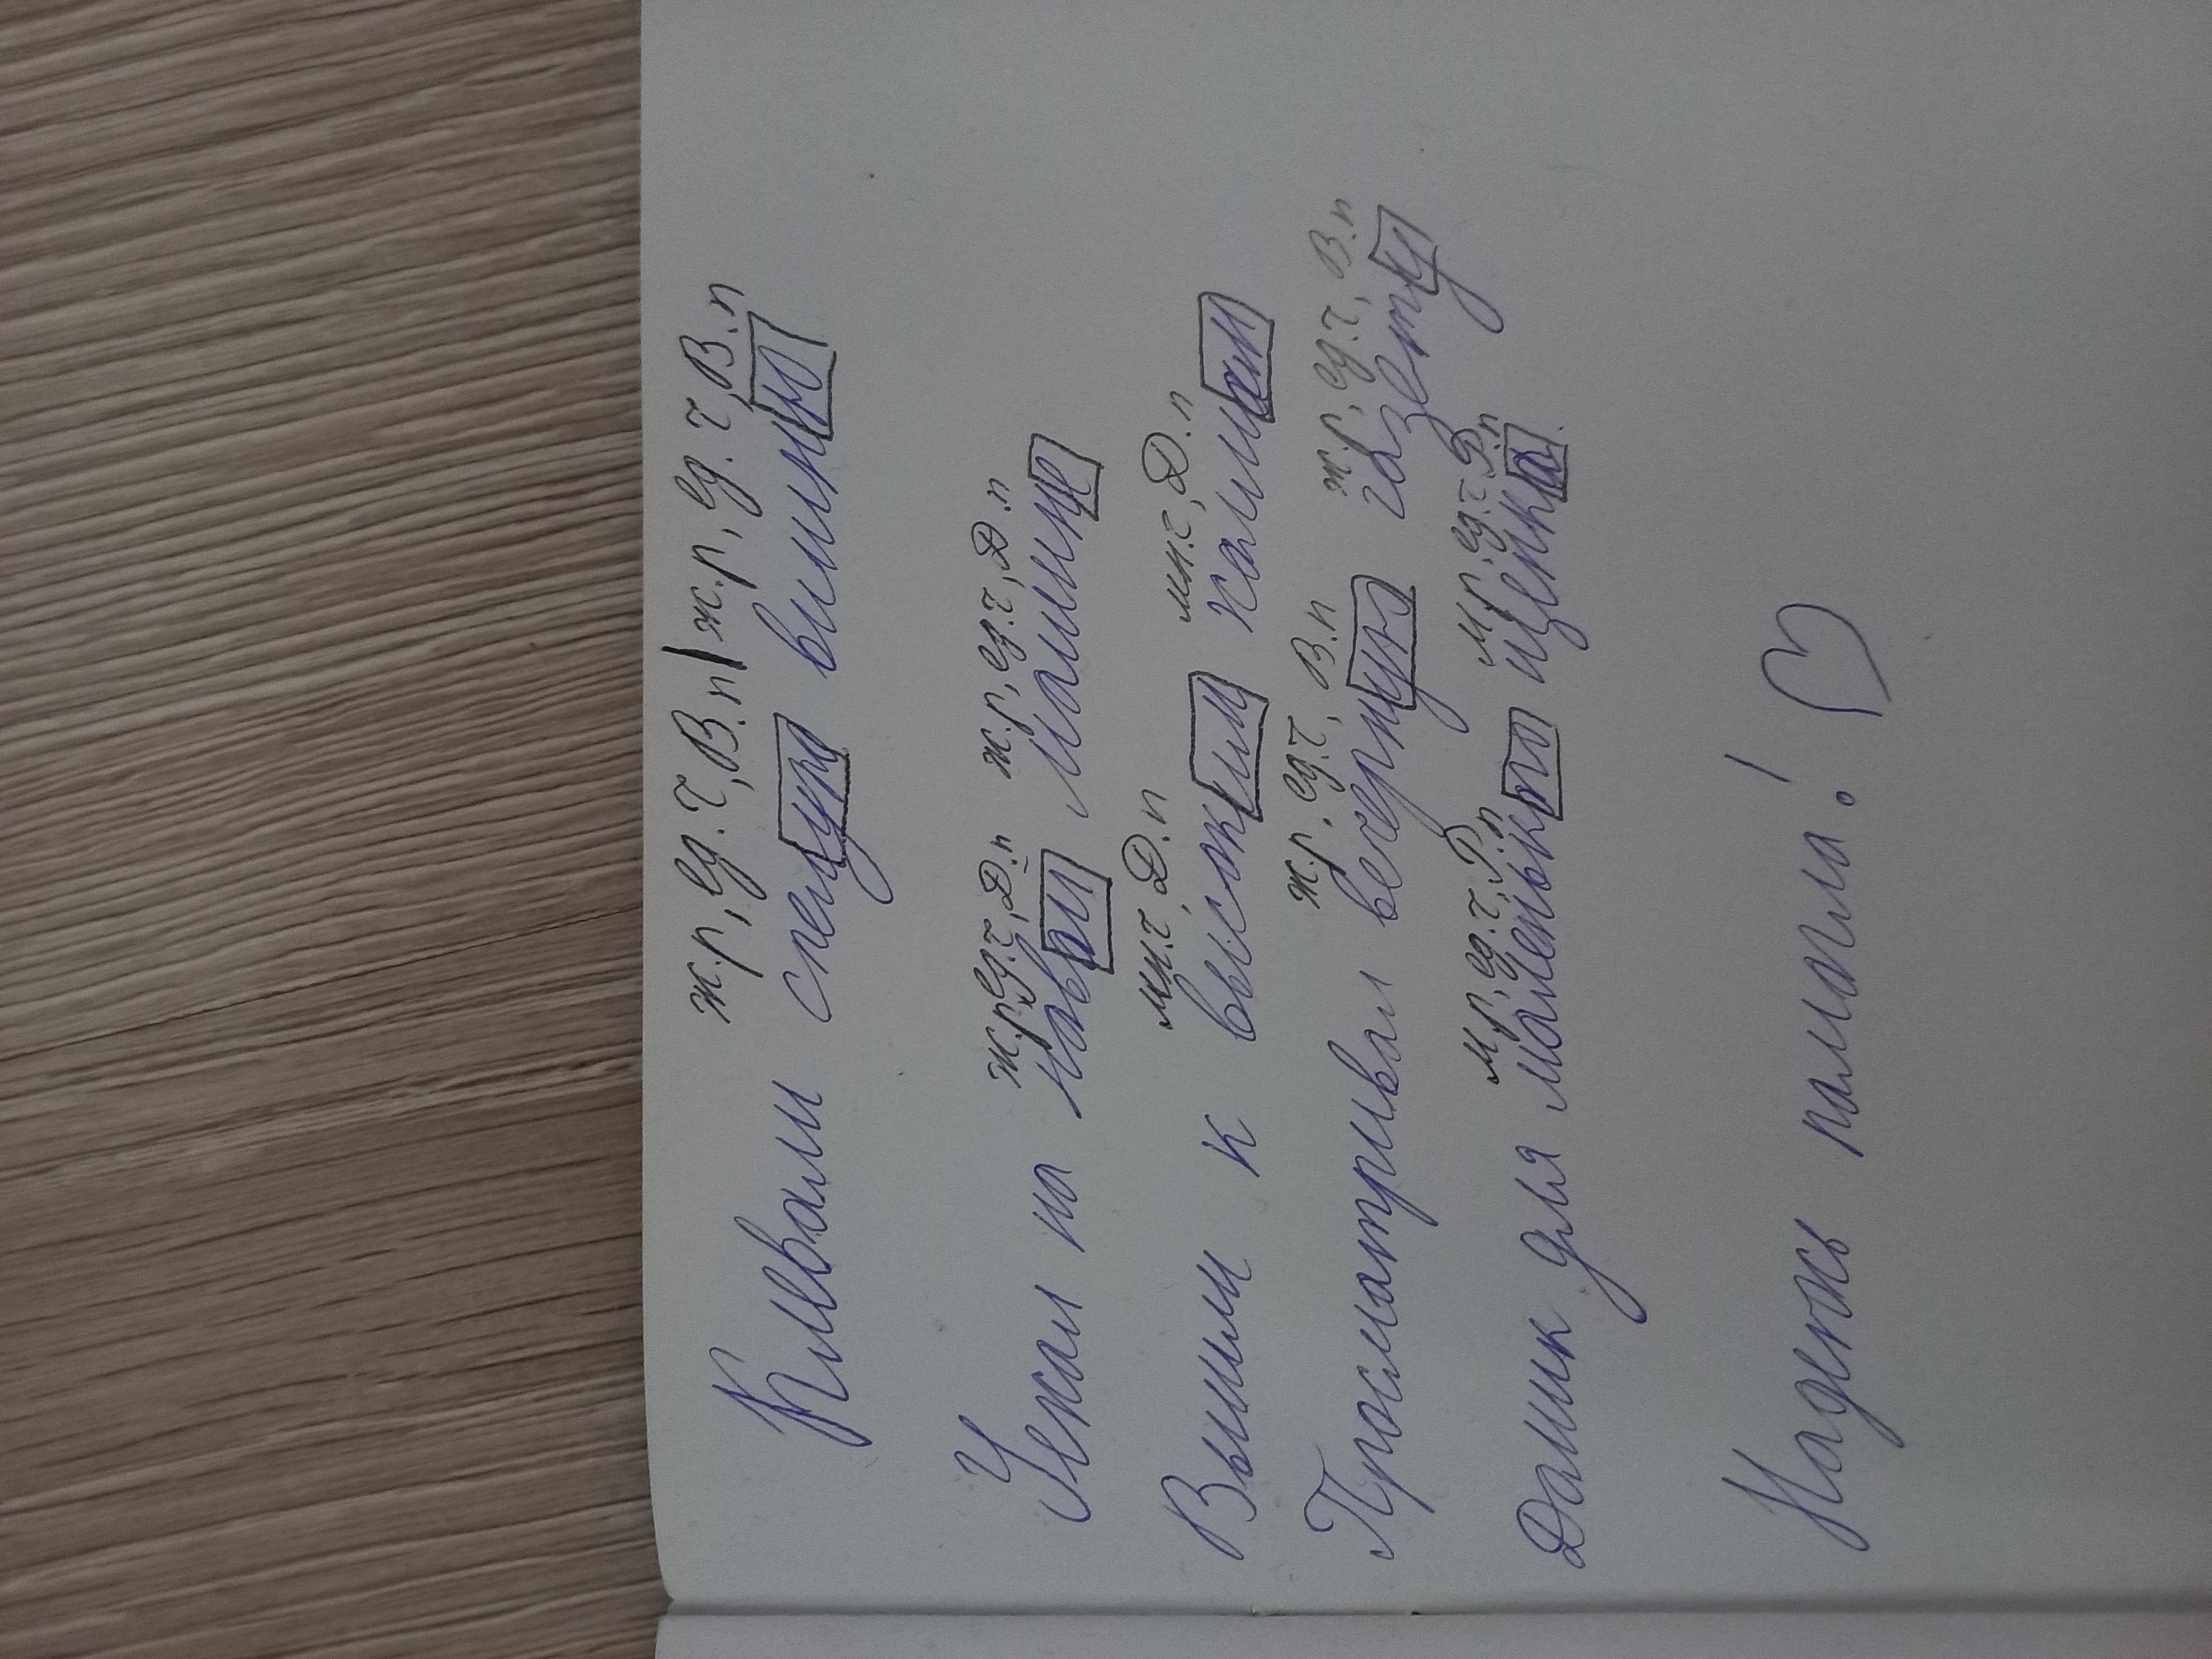 ж.р, ед.ч, В.п | ж.р, ед.ч, В.п
Клевали спелую вишню
ж.р, ед.ч, Д.п ж.р, ед.ч, Д.п
Уехал на новой машине
мн.ч, Д.п мн.ч, Д.п
Вышли к высоким холмам
ж.р, ед.ч, В.п ж.р, ед.ч, В.п
Просматривал вечернюю газету
м.р, ед.ч, Р.п м.р, ед.ч, Р.п
Домик для маленького щенка
Надеюсь помогла! ♡